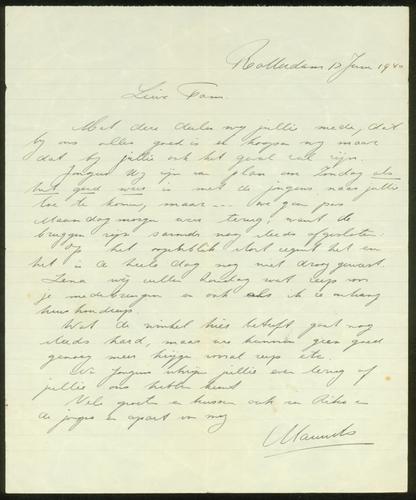 Rotterdam 12 Juni 1940
Lieve Fam.
Met deze deelen wij jullie mede, dat
bij ons alles goed is en hoopen wij maar
dat bij jullie ook het geval zal zijn.
Jongens wij zijn van plan om Zondag als
het goed weer is met de jongens naar jullie
toe te komen, maar --- we gaan pas
Maandagmorgen weer terug, want de
bruggen zijn savonds nog steeds afgesloten.
Op het oogenblik stort regent het en
het is de heele dag nog niet droog geweest.
Lena wij zullen Zondag wat zeep voor
je medebrengen en ook als ik ze ontvang
Wat de winkel hier betreft gaat nog
steeds hard, maar we kunnen geen goed
genoeg meer krijgen vooral zeep etc.
Nu Jongens schrijven jullie even terug of
jullie ons hebben kunt
Vele groeten en kussen ook van Rika en
de jongens en apart van mij
Maurits